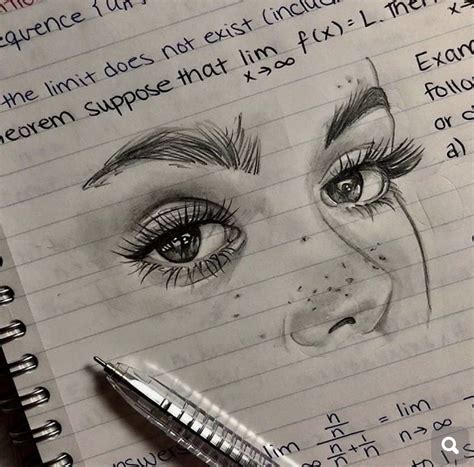 equence {an}
the limit does not exist (includ
eorem suppose that lim f(x) = L. Then
x→∞
x→
Exam
follo
or d
a)
answers
lim n/n / n/n + 1/n = lim
n→∞